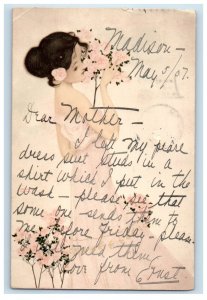 Madison -
May 5/07.
Dear Mother -
I left my
dress suit studs in a
shirt which I put in the
wash - please see that
some one sends them to
me before Friday - please.
I need them
Love from Ernest